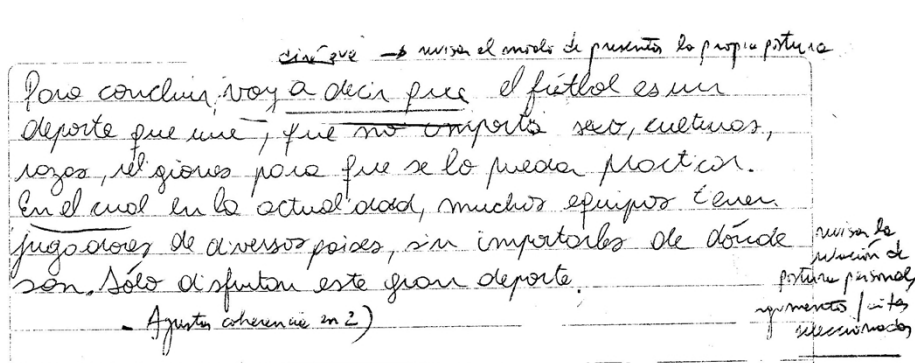 diré que → revisar el modo de presentar la propia postura
Para concluir, voy a decir que el fútbol es un
deporte que une, que no importa sexo, culturas,
razas, religiones para que se lo pueda practicar.
En el cual en la actualidad, muchos equipos tienen
jugadores de diversos países, sin importarles de dónde
son. Sólo disfrutan este gran deporte.
- Ajustar coherencia en 2)
revisar la
relación de
postura personal,
argumentos / citas
seleccionadas